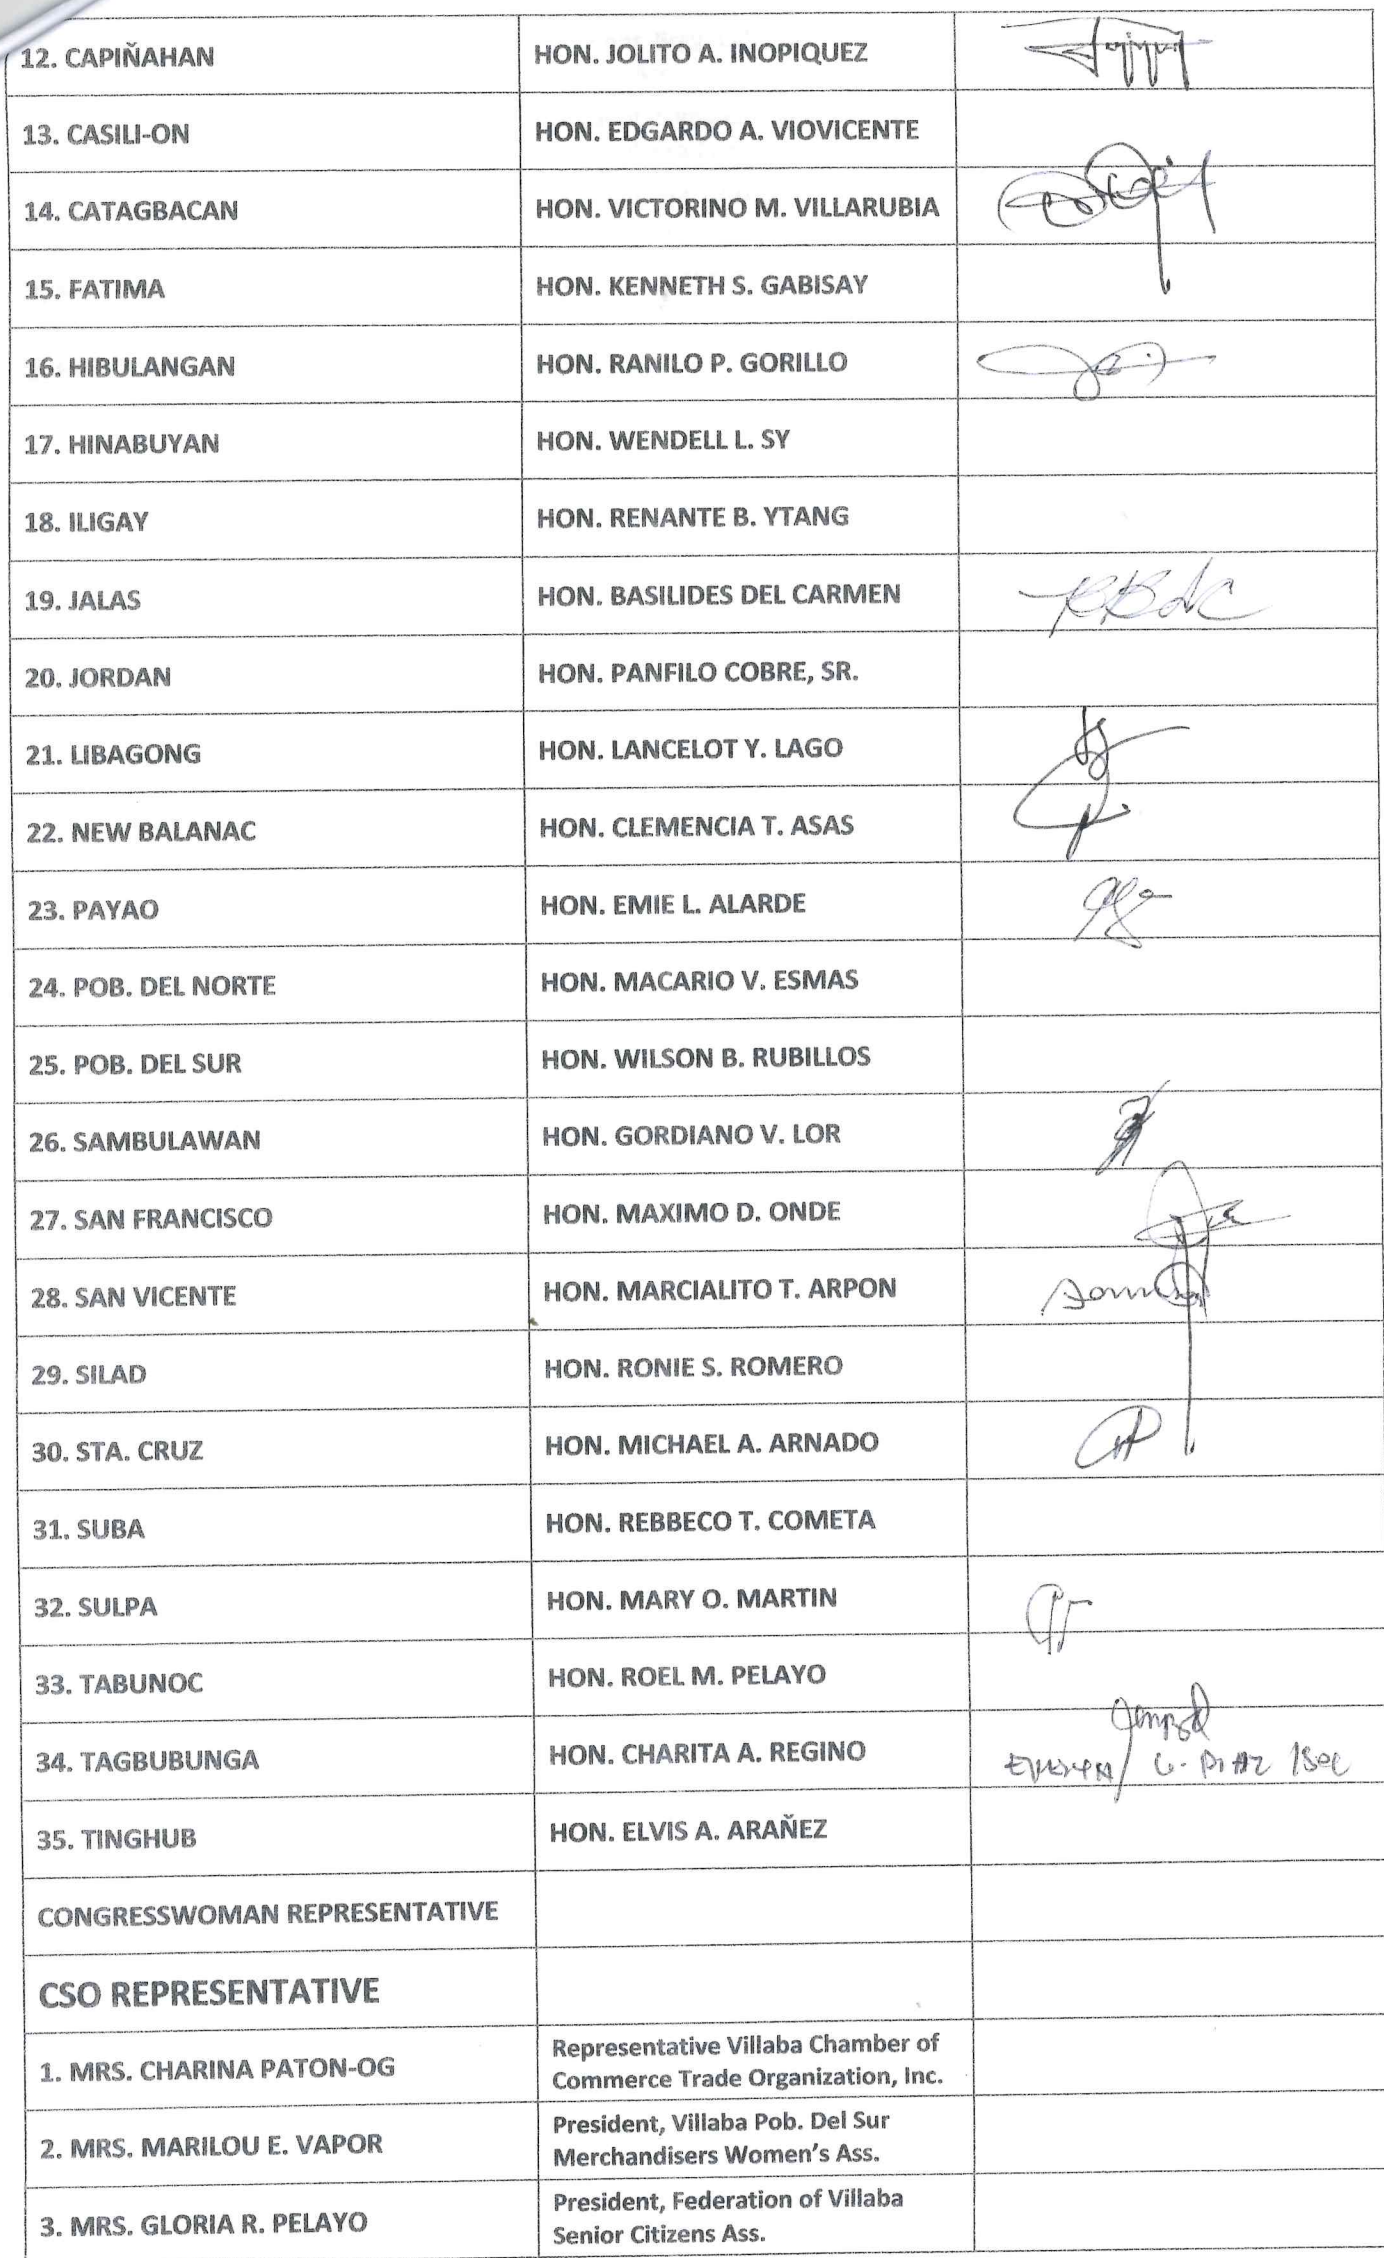 12. CAPIÑAHAN HON. JOLITO A. INOPIQUEZ
13. CASILI-ON HON. EDGARDO A. VIOVICENTE
14. CATAGBACAN HON. VICTORINO M. VILLARUBIA
15. FATIMA HON. KENNETH S. GABISAY
16. HIBULANGAN HON. RANILO P. GORILLO
17. HINABUYAN HON. WENDELL L. SY
18. ILIGAY HON. RENANTE B. YTANG
19. JALAS HON. BASILIDES DEL CARMEN
20. JORDAN HON. PANFILO COBRE, SR.
21. LIBAGONG HON. LANCELOT Y. LAGO
22. NEW BALANAC HON. CLEMENCIA T. ASAS
23. PAYAO HON. EMIE L. ALARDE
24. POB. DEL NORTE HON. MACARIO V. ESMAS
25. POB. DEL SUR HON. WILSON B. RUBILLOS
26. SAMBULAWAN HON. GORDIANO V. LOR
27. SAN FRANCISCO HON. MAXIMO D. ONDE
28. SAN VICENTE HON. MARCIALITO T. ARPON
29. SILAD HON. RONIE S. ROMERO
30. STA. CRUZ HON. MICHAEL A. ARNADO
31. SUBA HON. REBBECO T. COMETA
32. SULPA HON. MARY O. MARTIN
33. TABUNOC HON. ROEL M. PELAYO
34. TAGBUBUNGA HON. CHARITA A. REGINO
35. TINGHUB HON. ELVIS A. ARAŇEZ
CONGRESSWOMAN REPRESENTATIVE
CSO REPRESENTATIVE
1. MRS. CHARINA PATON-OG
Representative Villaba Chamber of
Commerce Trade Organization, Inc.
2. MRS. MARILOU E. VAPOR
President, Villaba Pob. Del Sur
Merchandisers Women's Ass.
3. MRS. GLORIA R. PELAYO
President, Federation of Villaba
Senior Citizens Ass.